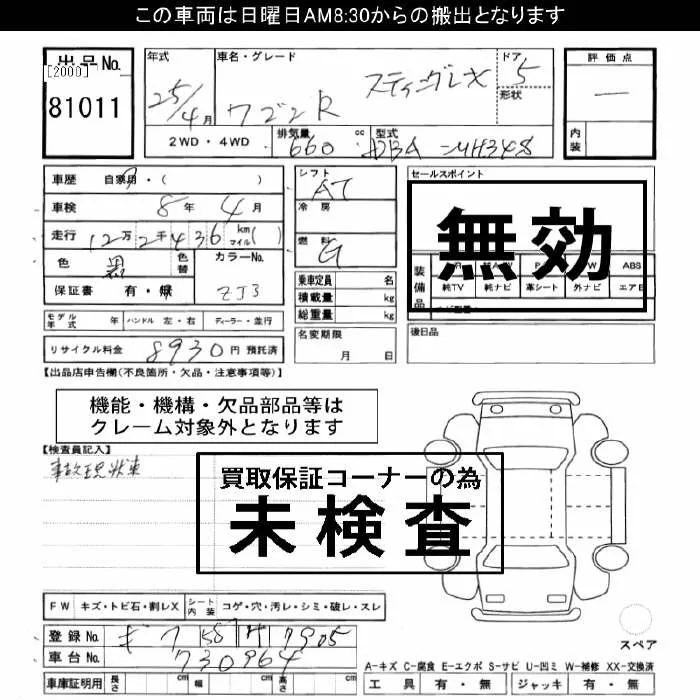 この車両は日曜日AM8:30からの搬出となります
出品No.
[2000]
81011
年式
25/4月
車名・グレード
ワゴンR スティングレX
ドア
5
形状
評価点
—
内装
2WD・4WD
排気量
660 cc
型式
DBA-MH34S
車歴 自家用・( )
車検 8年 4月
走行 12万2千436 km マイル( )
色 黒
色替
カラーNo.
ZJ3
保証書 有・無
シフト
AT
冷房
燃料
G
乗車定員 名
積載量 kg
総重量 kg
名変期限
月 日
セールスポイント
無効
装備品
ABS
純TV 純ナビ 革シート 外ナビ エアB
後日品
モデル年式 年 ハンドル 左・右 ディーラー・並行
リサイクル料金 8930円 預託済
【出品店申告欄(不良箇所・欠品・注意事項等)】
機能・機構・欠品部品等は
クレーム対象外となります
【検査員記入】
事故現状車
買取保証コーナーの為
未検査
FW キズ・トビ石・割レX シート内装 コゲ・穴・汚レ・シミ・破レ・スレ
登録No.
7905
車台No. 730964
スペア
A-キズ C-腐食 E-エクボ S-サビ U-凹ミ W-補修 XX-交換済
車庫証明用 長さ cm 幅 cm 高さ cm
工具 有・無 ジャッキ 有・無